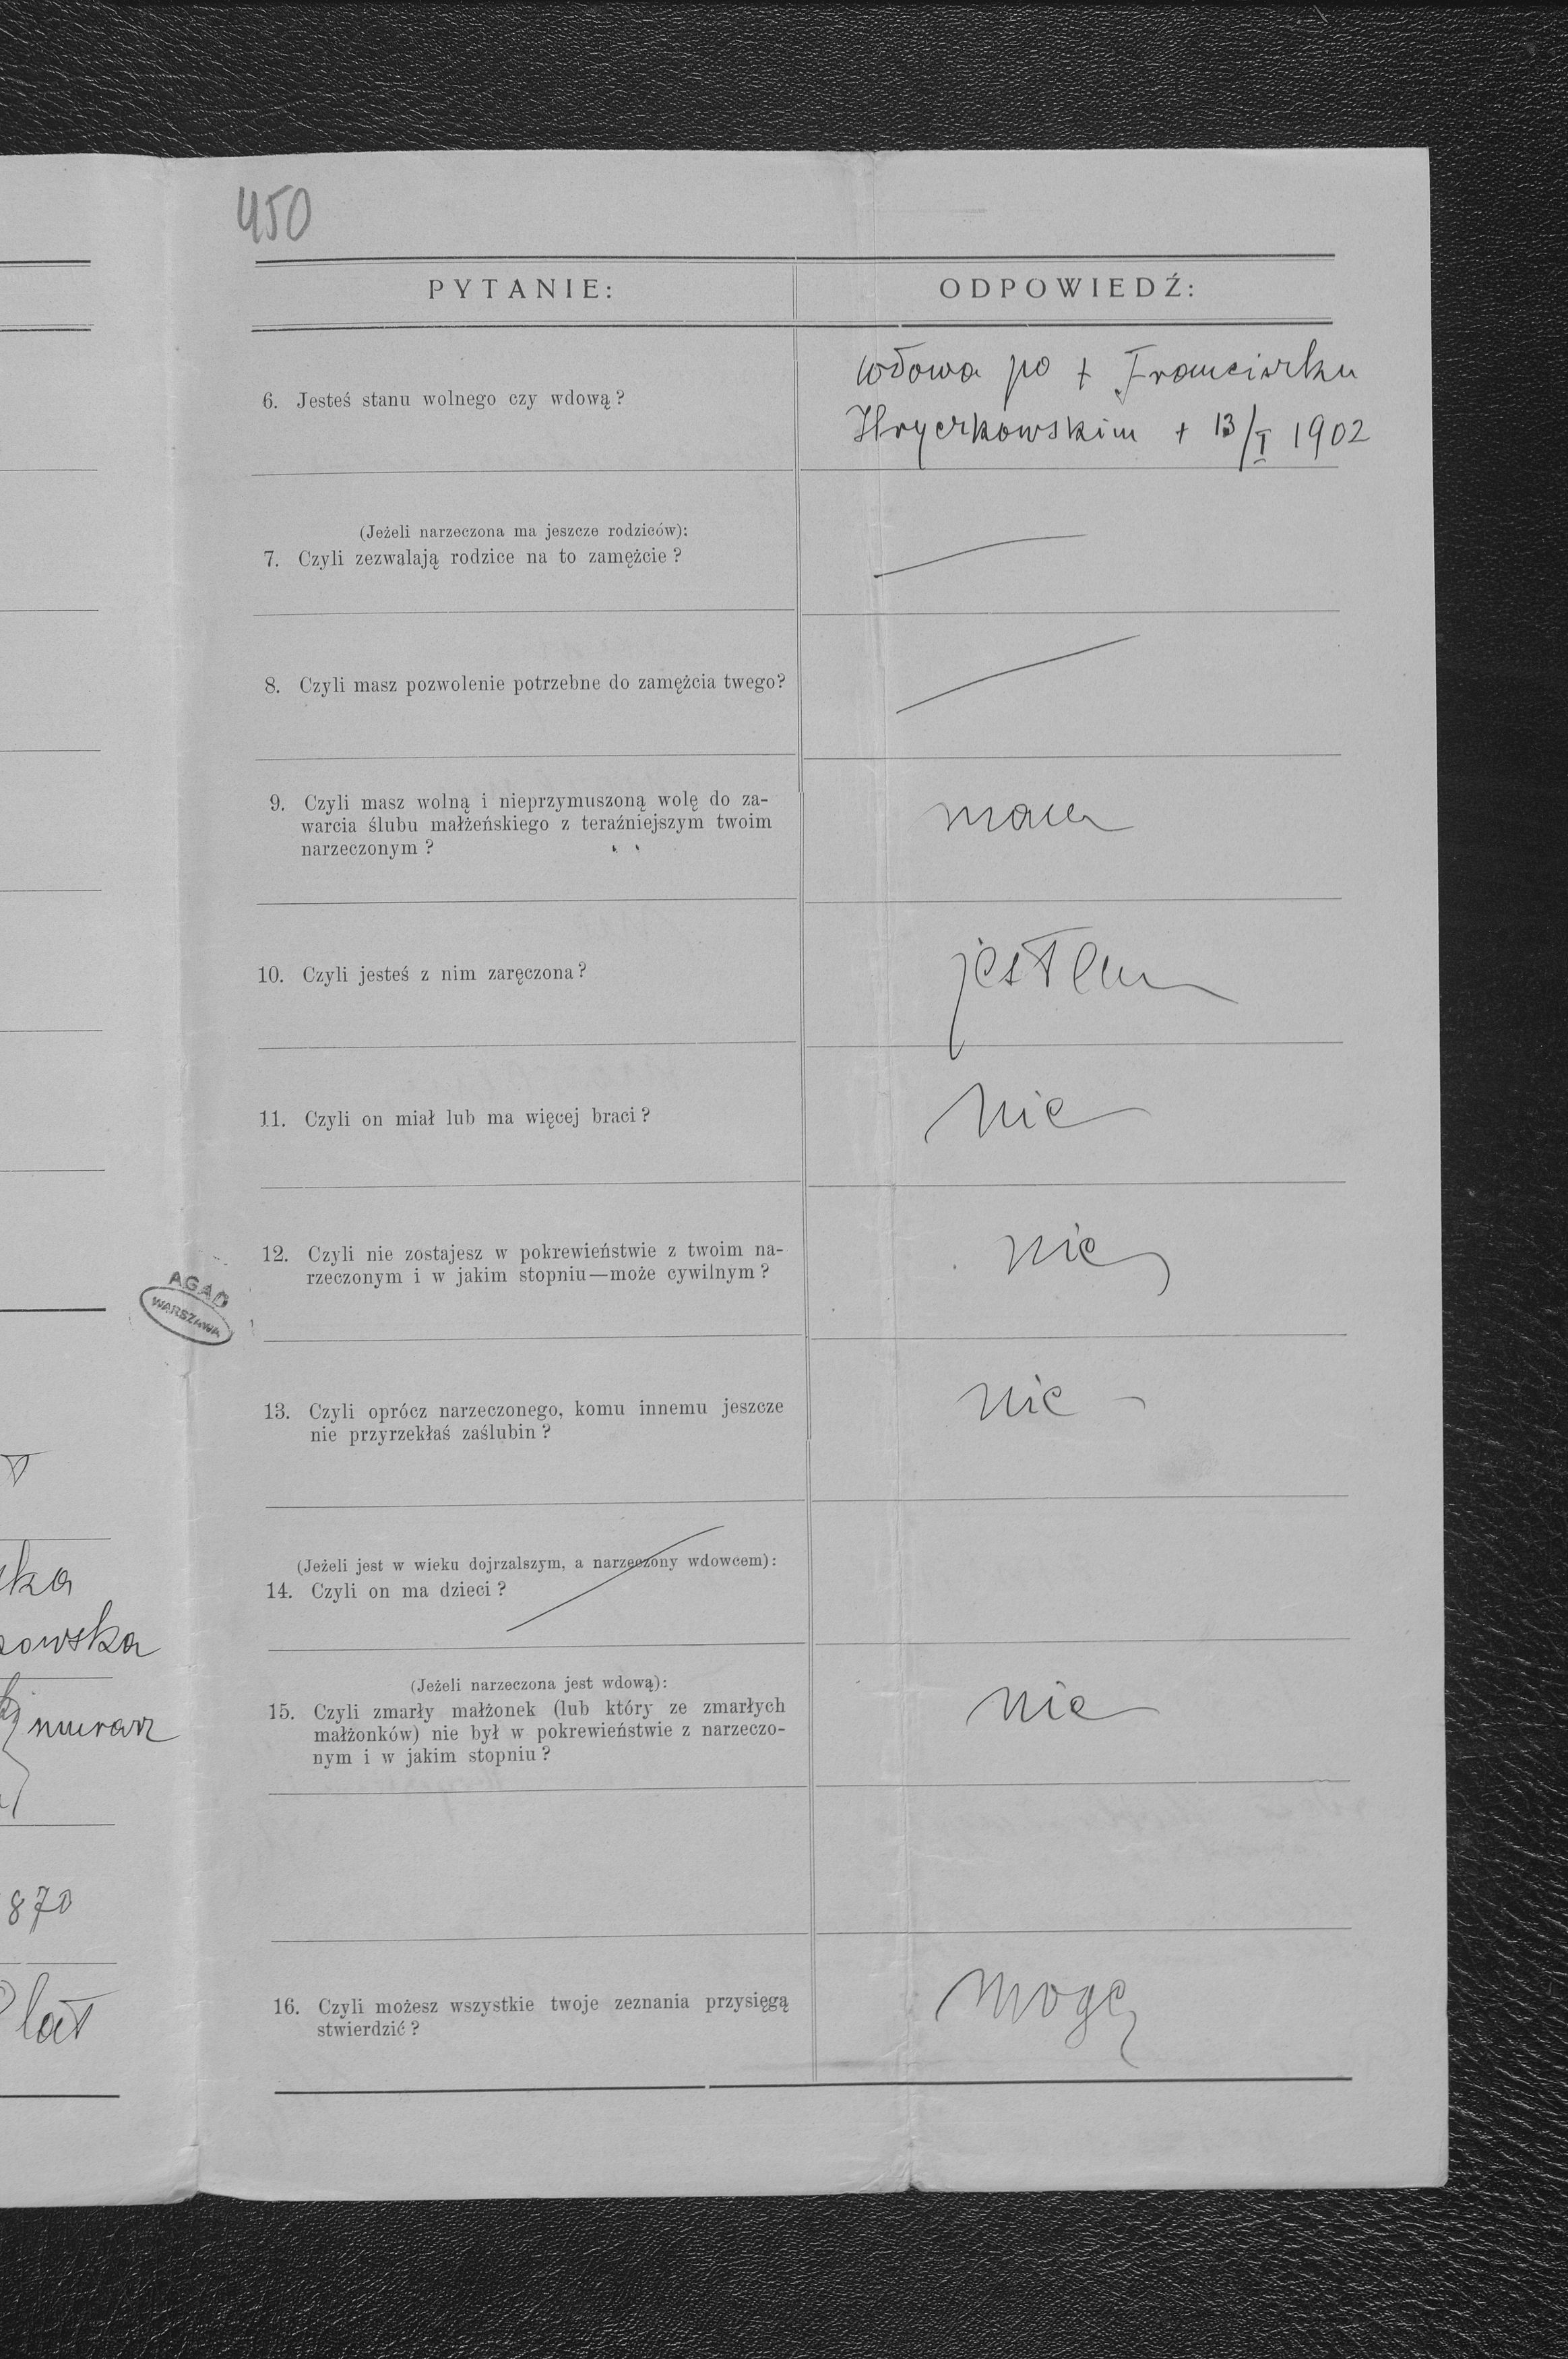 450
PYTANIE:
ODPOWIEDŹ:
6. Jesteś stanu wolnego czy wdową?
wdowa po + Franciszku
Hryczkowskim + 13/I 1902
(Jeżeli narzeczona ma jeszcze rodziców):
7. Czyli zezwalają rodzice na to zamężcie?
8. Czyli masz pozwolenie potrzebne do zamężcia twego?
9. Czyli masz wolną i nieprzymuszoną wolę do za-
warcia ślubu małżeńskiego z teraźniejszym twoim
narzeczonym?
mam
10. Czyli jesteś z nim zaręczona?
jestem
11. Czyli on miał lub ma więcej braci?
nie
12. Czyli nie zostajesz w pokrewieństwie z twoim na-
rzeczonym i w jakim stopniu—może cywilnym?
nie
13. Czyli oprócz narzeczonego, komu innemu jeszcze
nie przyrzekłaś zaślubin?
nie -
(Jeżeli jest w wieku dojrzalszym, a narzeczony wdowcem):
14. Czyli on ma dzieci?
(Jeżeli narzeczona jest wdową):
15. Czyli zmarły małżonek (lub który ze zmarłych
małżonków) nie był w pokrewieństwie z narzeczo-
nym i w jakim stopniu?
nie
16. Czyli możesz wszystkie twoje zeznania przysięgą
stwierdzić?
mogę
AGAD
WARSZAWA
ska
owska
murarz
870
lat